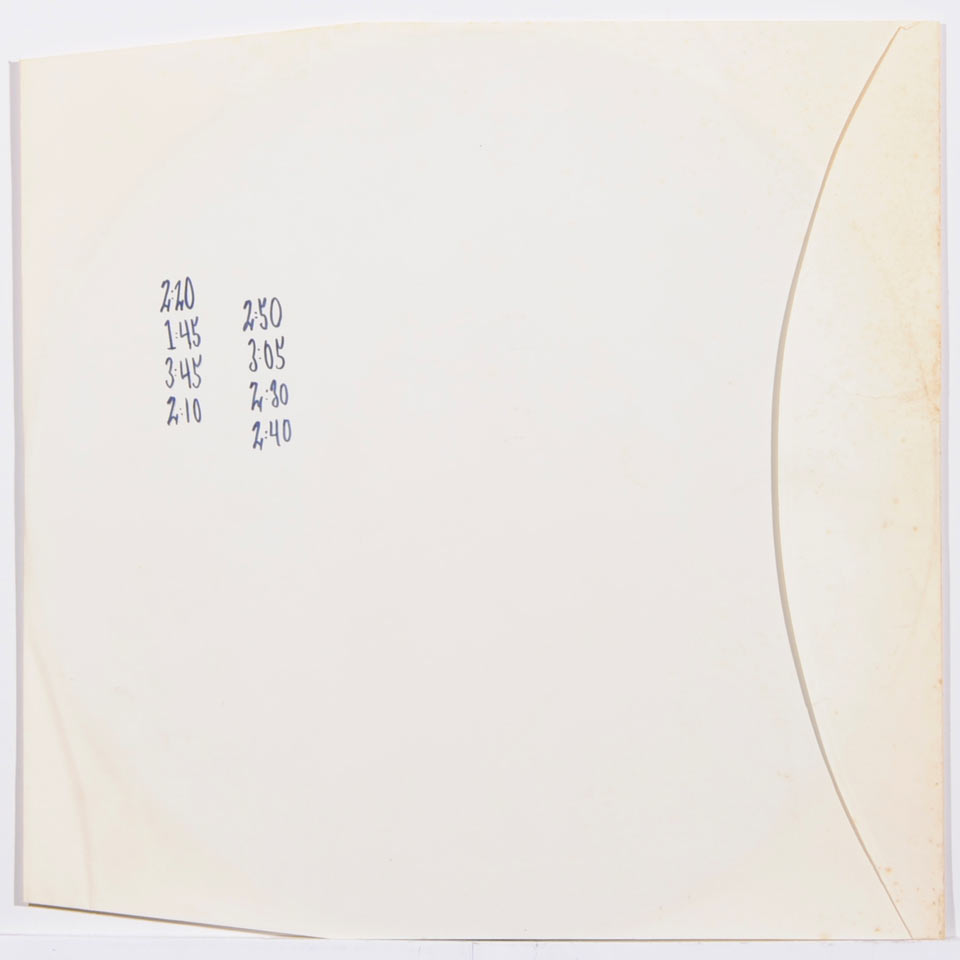 2:20
1:45
3:45
2:10
2:50
3:05
2:30
2:40